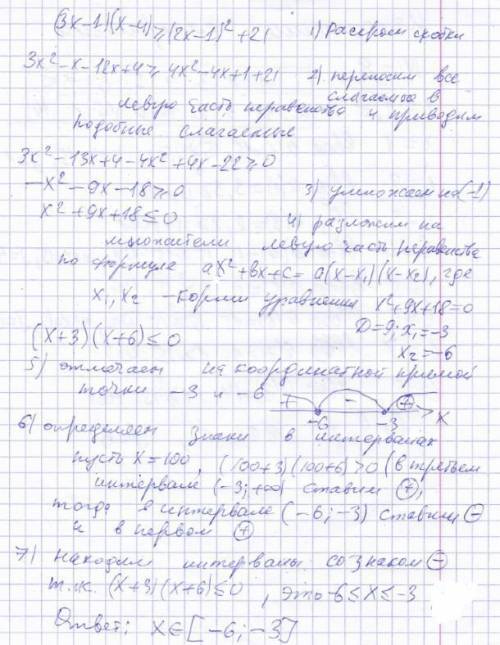 (3x-1)(x-4)≥(2x-1)²+21 1) Раскроем скобки
3x²-x-12x+4≥4x²-4x+1+21 2) переносим все
слагаемые в
левую часть неравенства и приводим
подобные слагаемые
3x²-13x+4-4x²+4x-22≥0
-x²-9x-18≥0 3) умножаем на (-1)
x²+9x+18≤0 4) разложим на
множители левую часть неравенства
по формуле ax²+bx+c=a(x-x₁)(x-x₂), где
x₁, x₂ -корни уравнения x²+9x+18=0
D=9; x₁=-3
x₂=-6
(x+3)(x+6)≤0
5) отмечаем на координатной прямой
точки -3 и -6
+ - +
-6 -3 x
6) определяем знаки в интервалах
пусть x=100, (100+3)(100+6)>0 (в третьем
интервале (-3;+∞) ставим +,
тогда в интервале (-6;-3) ставим -
и в первом +
7) находим интервалы со знаком -
т.к. (x+3)(x+6)≤0, это -6≤x≤-3
Ответ: x∈[-6;-3]